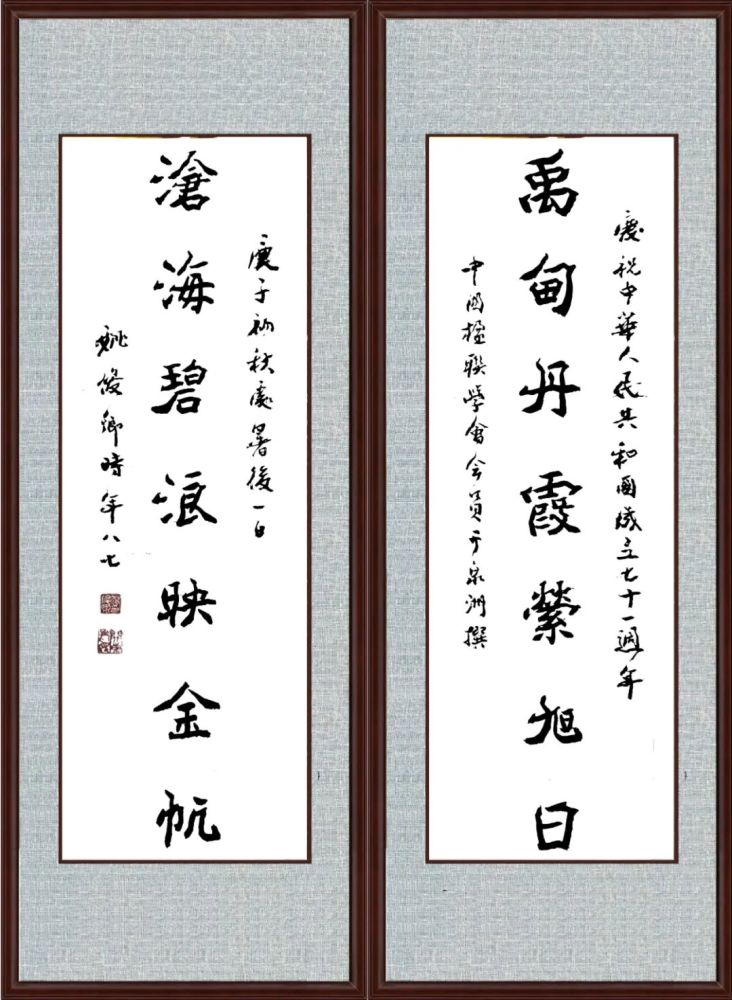 慶祝中華人民共和國成立七十一週年
禹甸丹霞縈旭日
中国楹聯學會会員于泉洲撰
庚子初秋處暑後一日
滄海碧浪映金帆
姚俊卿時年八七